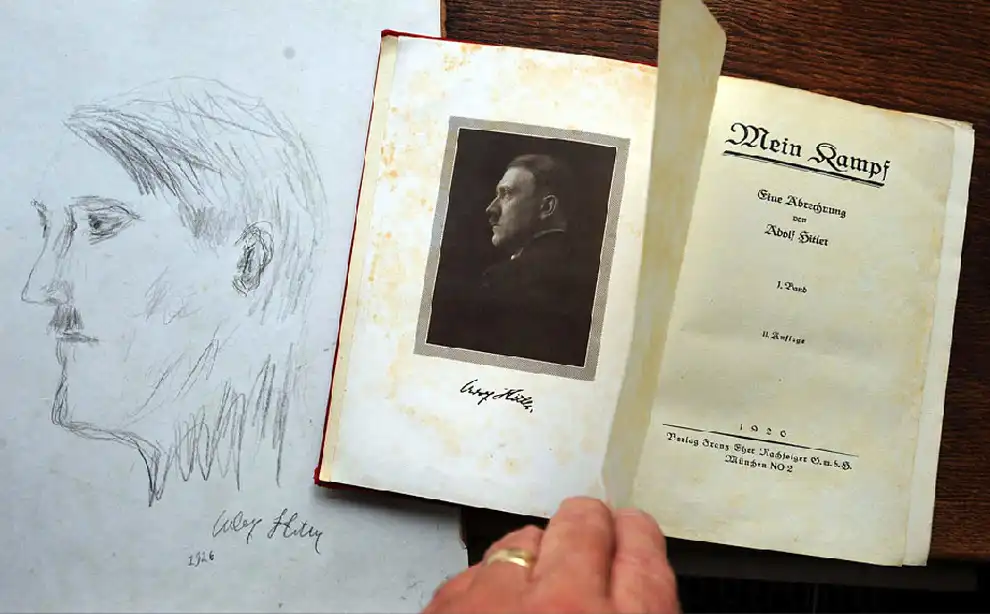 Adolf Hitler
1926
Adolf Hitler.
Mein Kampf
Eine Abrechnung
von
Adolf Hitler
I. Band
II. Auflage
1926
Verlag Franz Eher Nachfolger G. m. b. H.
München NO 2